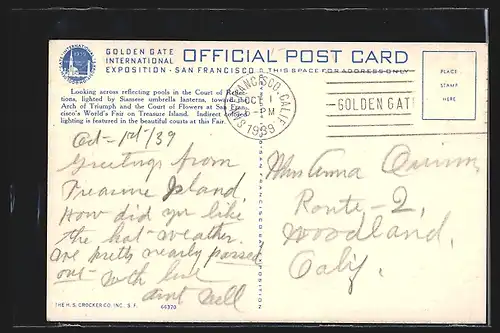 GOLDEN GATE
INTERNATIONAL
EXPOSITION - SAN FRANCISCO
OFFICIAL POST CARD
THIS SPACE FOR ADDRESS ONLY
1939
Looking across reflecting pools in the Court of Reflec-
tions, lighted by Siamese umbrella lanterns, toward the
Arch of Triumph and the Court of Flowers at San Fran-
cisco's World's Fair on Treasure Island. Indirect colored
lighting is featured in the beautiful courts at this Fair.
SAN FRANCISCO, CALIF.
OCT 1
6-PM
1939
GOLDEN GATE
PLACE
STAMP
HERE
Oct-1st/39
Greetings from
Treasure Island.
How did yu like
the hot-weather.
We pretty nearly passed
out- with love
aunt Nell
Mrs Anna Quinn
Route-2,
Woodland,
Calif.
THE H. S. CROCKER CO. INC., S. F.
46370